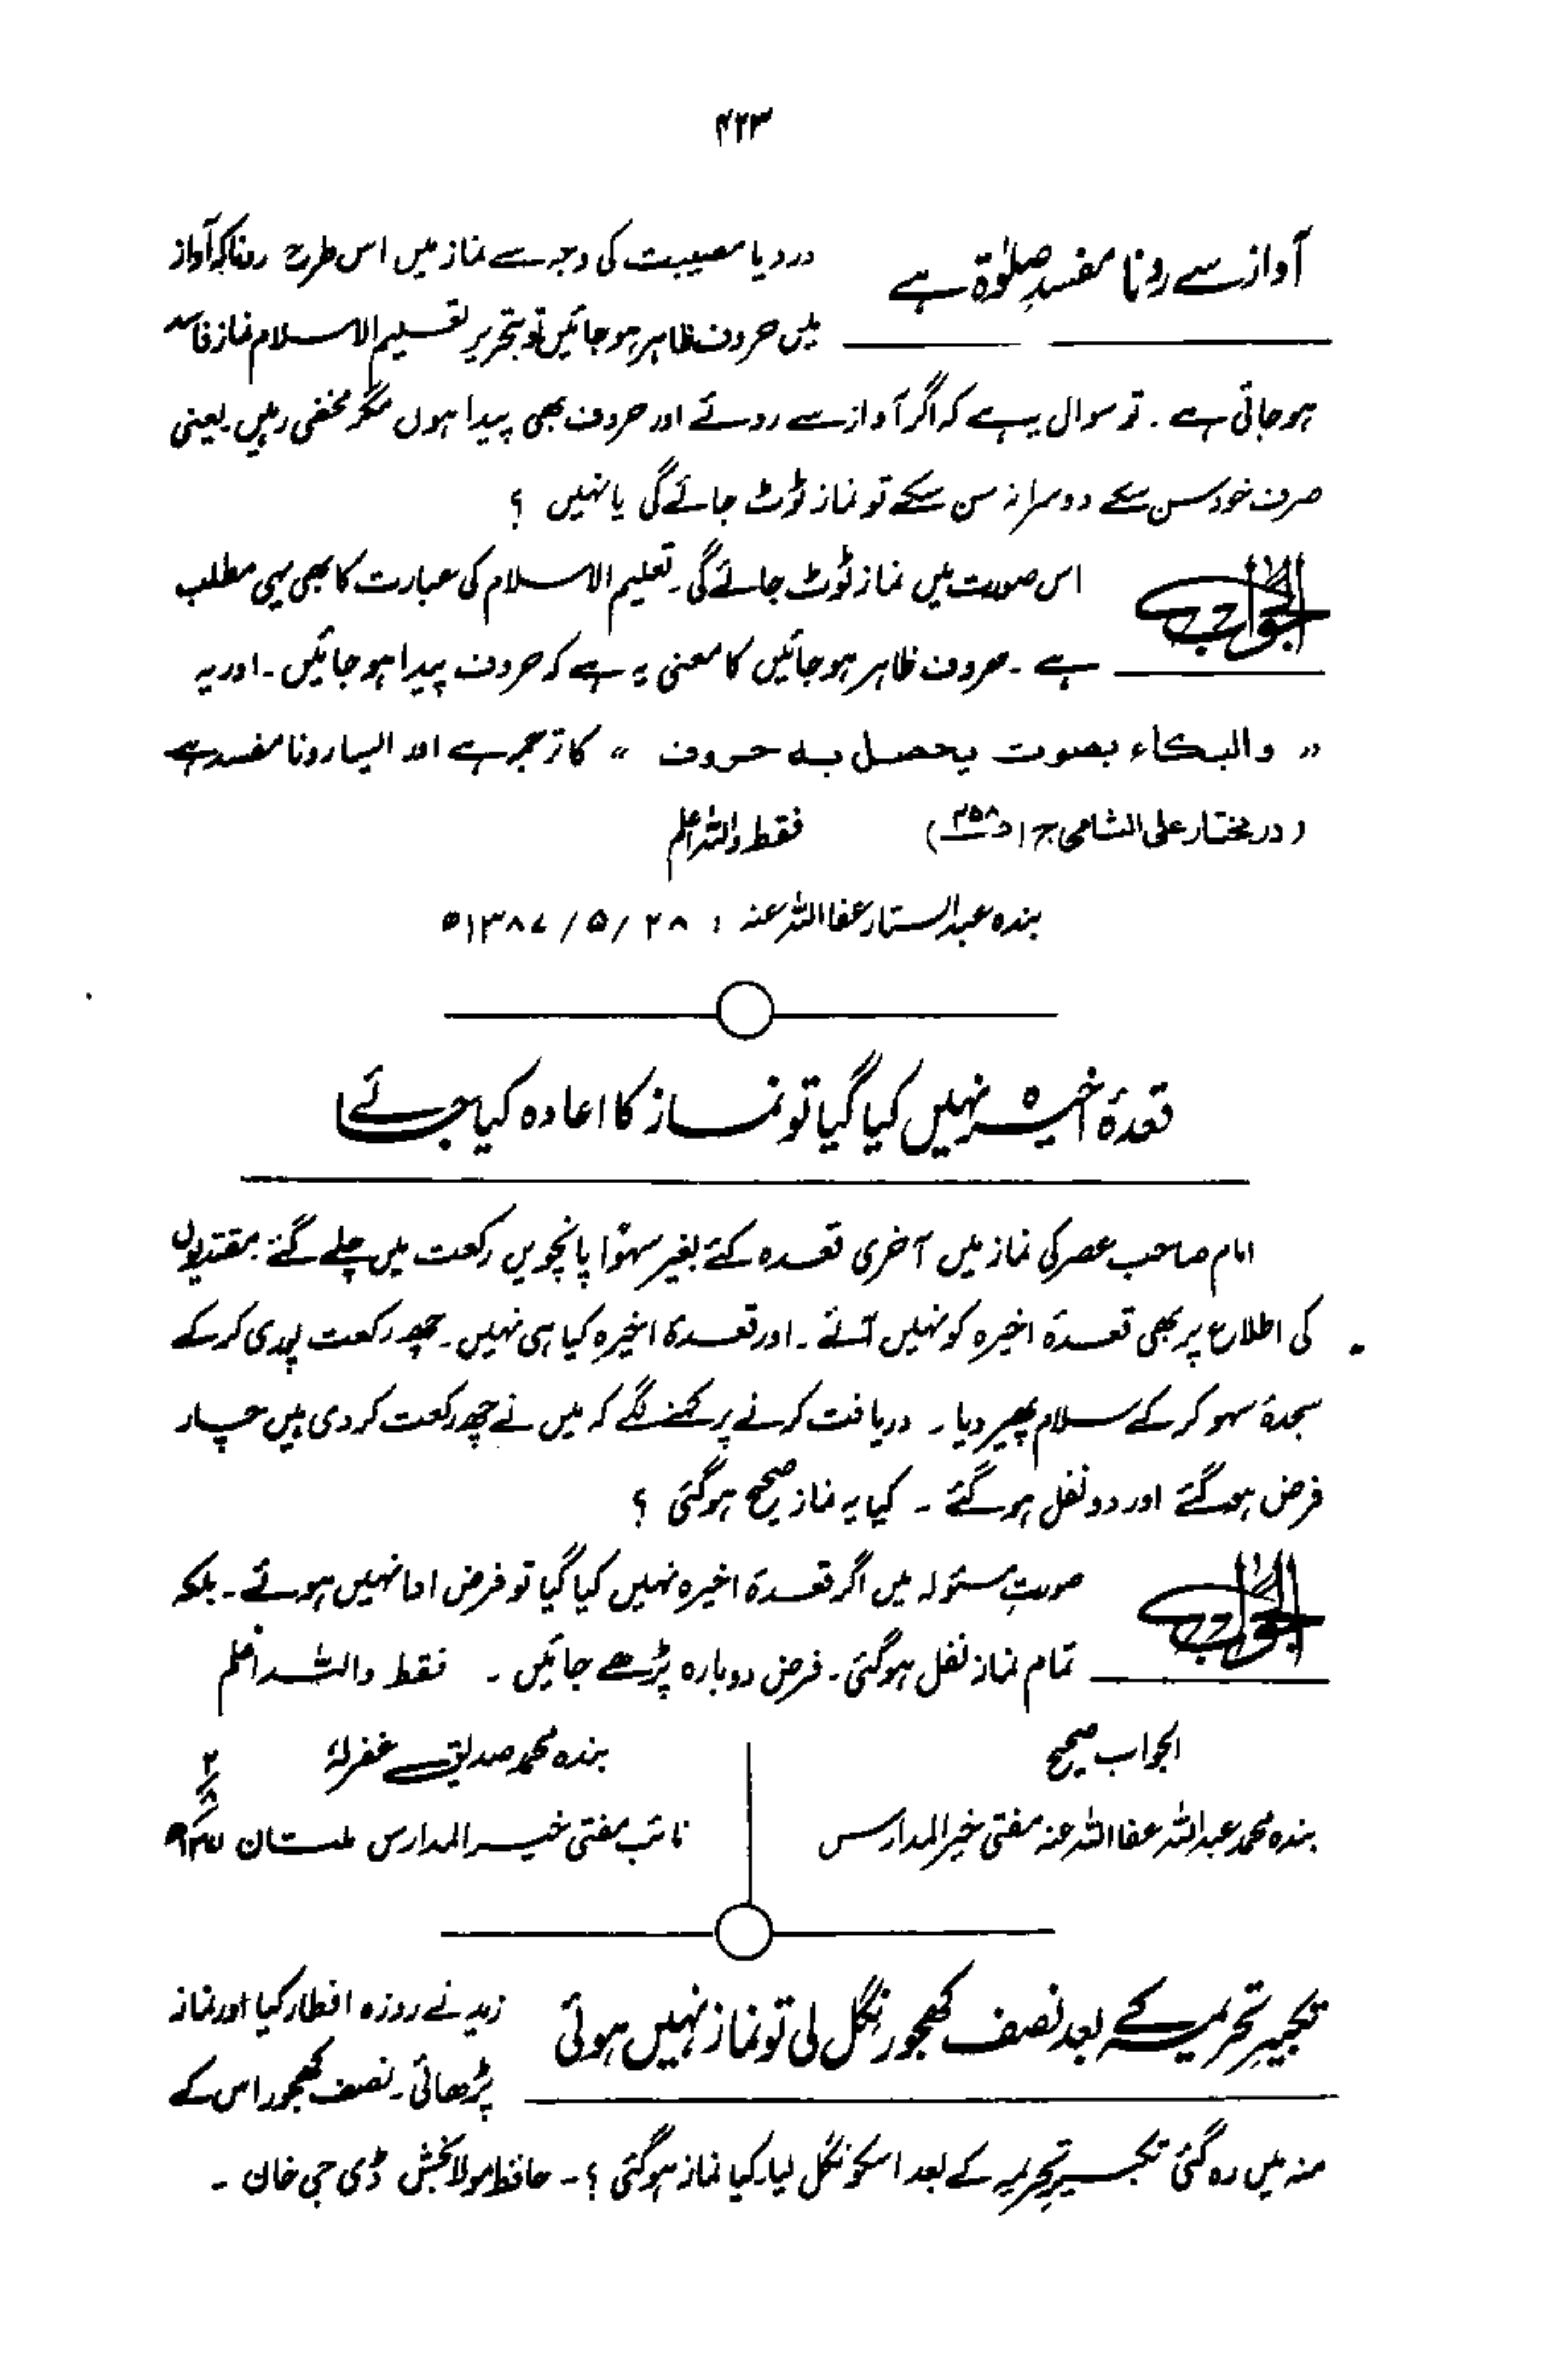 ۴۲۳
آواز سے رونا مفسدِ صلوٰۃ ہے
درد یا مصیبت کی وجہ سے نماز میں اس طرح رونا کہ آواز
میں حروف ظاہر ہو جائیں تو بتحریر تعلیم الاسلام نماز فاسد
ہو جاتی ہے ۔ تو سوال یہ ہے کہ اگر آواز سے روئے اور حروف بھی پیدا ہوں مگر مخفی رہیں یعنی
صرف خود سن سکے دوسرا نہ سن سکے تو نماز ٹوٹ جائے گی یا نہیں ؟
الجواب
اس صورت میں نماز ٹوٹ جائے گی ۔ تعلیم الاسلام کی عبارت کا بھی یہی مطلب
ہے ۔ حروف ظاہر ہو جائیں کا معنی یہ ہے کہ حروف پیدا ہو جائیں ۔ اور یہ
" والبكاء بصوت يحصل به حروف " کا ترجمہ ہے اور ایسا رونا مفسد ہے
( در مختار علی الشامی ج ۱ ص ) فقط واللہ اعلم
بندہ عبد الستار عفا اللہ عنہ ، ۲۸ / ۵ / ۱۳۸۷ ھ
قعدۂ اخیرہ نہیں کیا گیا تو نماز کا اعادہ کیا جائے
امام صاحب عصر کی نماز میں آخری قعدہ کئے بغیر سہوًا پانچویں رکعت میں چلے گئے ۔ مقتدیوں
کی اطلاع پر بھی قعدۂ اخیرہ کو نہیں آئے ۔ اور قعدۂ اخیرہ کیا ہی نہیں ۔ چھ رکعت پوری کر کے
سجدۂ سہو کر کے سلام پھیر دیا ۔ دریافت کرنے پر کہنے لگے کہ میں نے چھ رکعت کر دی ہیں چار
فرض ہو گئے اور دو نفل ہو گئے ۔ کیا یہ نماز صحیح ہو گئی ؟
الجواب
صورتِ مسئولہ میں اگر قعدۂ اخیرہ نہیں کیا گیا تو فرض ادا نہیں ہوئے ۔ بلکہ
تمام نماز نفل ہو گئی ۔ فرض دوبارہ پڑھے جائیں ۔ فقط واللہ اعلم
الجواب صحیح
بندہ محمد عبد اللہ عفا اللہ عنہ مفتی خیر المدارس
بندہ محمد صدیق غفرلہٗ
نائب مفتی خیر المدارس ملتان
تکبیرِ تحریمہ کے بعد نصف کھجور نگل لی تو نماز نہیں ہوئی
زید نے روزہ افطار کیا اور نماز
پڑھائی ۔ نصف کھجور اس کے
منہ میں رہ گئی تکبیرِ تحریمہ کے بعد اسکو نگل لیا ۔ کیا نماز ہو گئی ؟ ۔ حافظ مولا بخش ڈی جی خان ۔